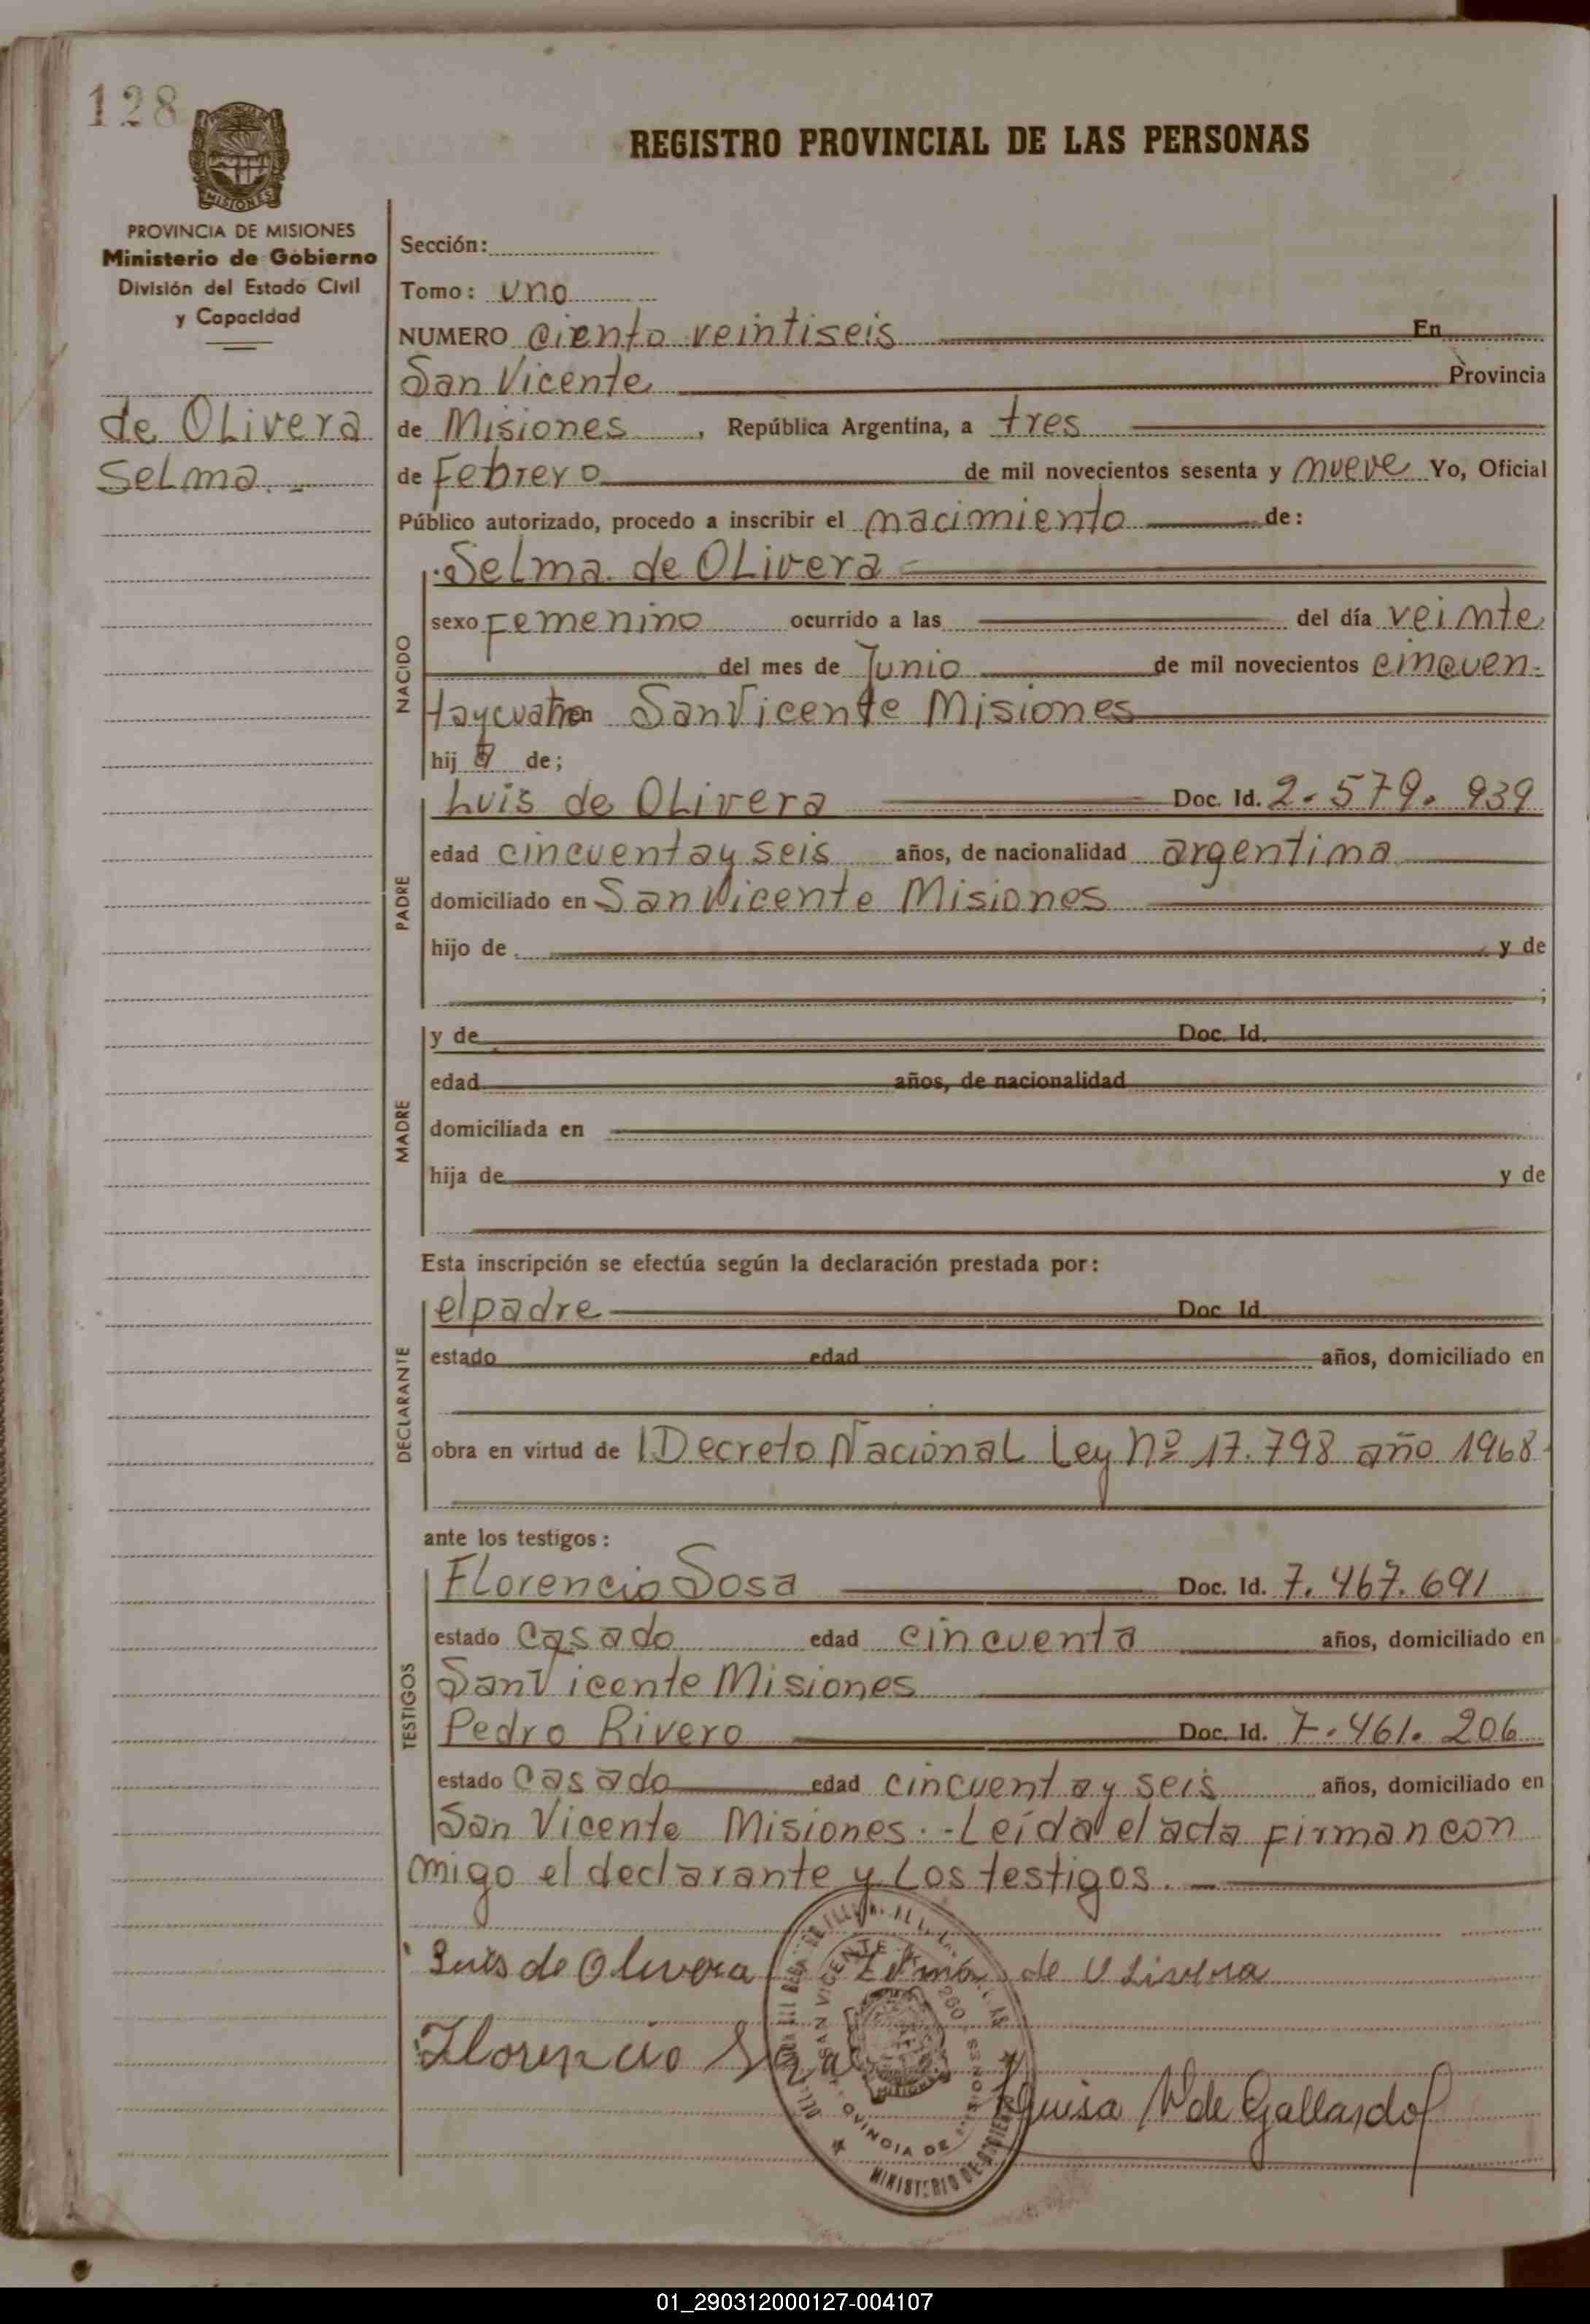 128
MISIONES
PROVINCIA DE MISIONES
Ministerio de Gobierno
División del Estado Civil
y Capacidad
de Olivera
Selma.-
REGISTRO PROVINCIAL DE LAS PERSONAS
Sección:
Tomo: uno
NUMERO ciento veintiseis En
San Vicente Provincia
de Misiones, República Argentina, a tres
de Febrero de mil novecientos sesenta y nueve Yo, Oficial
Público autorizado, procedo a inscribir el nacimiento de:
NACIDO
Selma de Olivera
sexo Femenino ocurrido a las del día veinte
del mes de Junio de mil novecientos cincuen-
taycuatro en San Vicente Misiones
hij a de;
PADRE
Luis de Olivera Doc. Id. 2.579.939
edad cincuenta y seis años, de nacionalidad argentina
domiciliado en San Vicente Misiones
hijo de y de
;
MADRE
y de Doc. Id.
edad años, de nacionalidad
domiciliada en
hija de y de
Esta inscripción se efectúa según la declaración prestada por:
DECLARANTE
el padre Doc. Id.
estado edad años, domiciliado en
obra en virtud de Decreto Nacional Ley Nº 17.798 año 1968
ante los testigos:
TESTIGOS
Florencio Sosa Doc. Id. 7.467.691
estado casado edad cincuenta años, domiciliado en
San Vicente Misiones
Pedro Rivero Doc. Id. 7.461.206
estado casado edad cincuenta y seis años, domiciliado en
San Vicente Misiones.-Leída el acta firman con
migo el declarante y los testigos.
Luis de Olivera de Olivera
Florencio Sosa
Luisa de Gallardo
SAN VICENTE
MINISTERIO DE
01_290312000127-004107